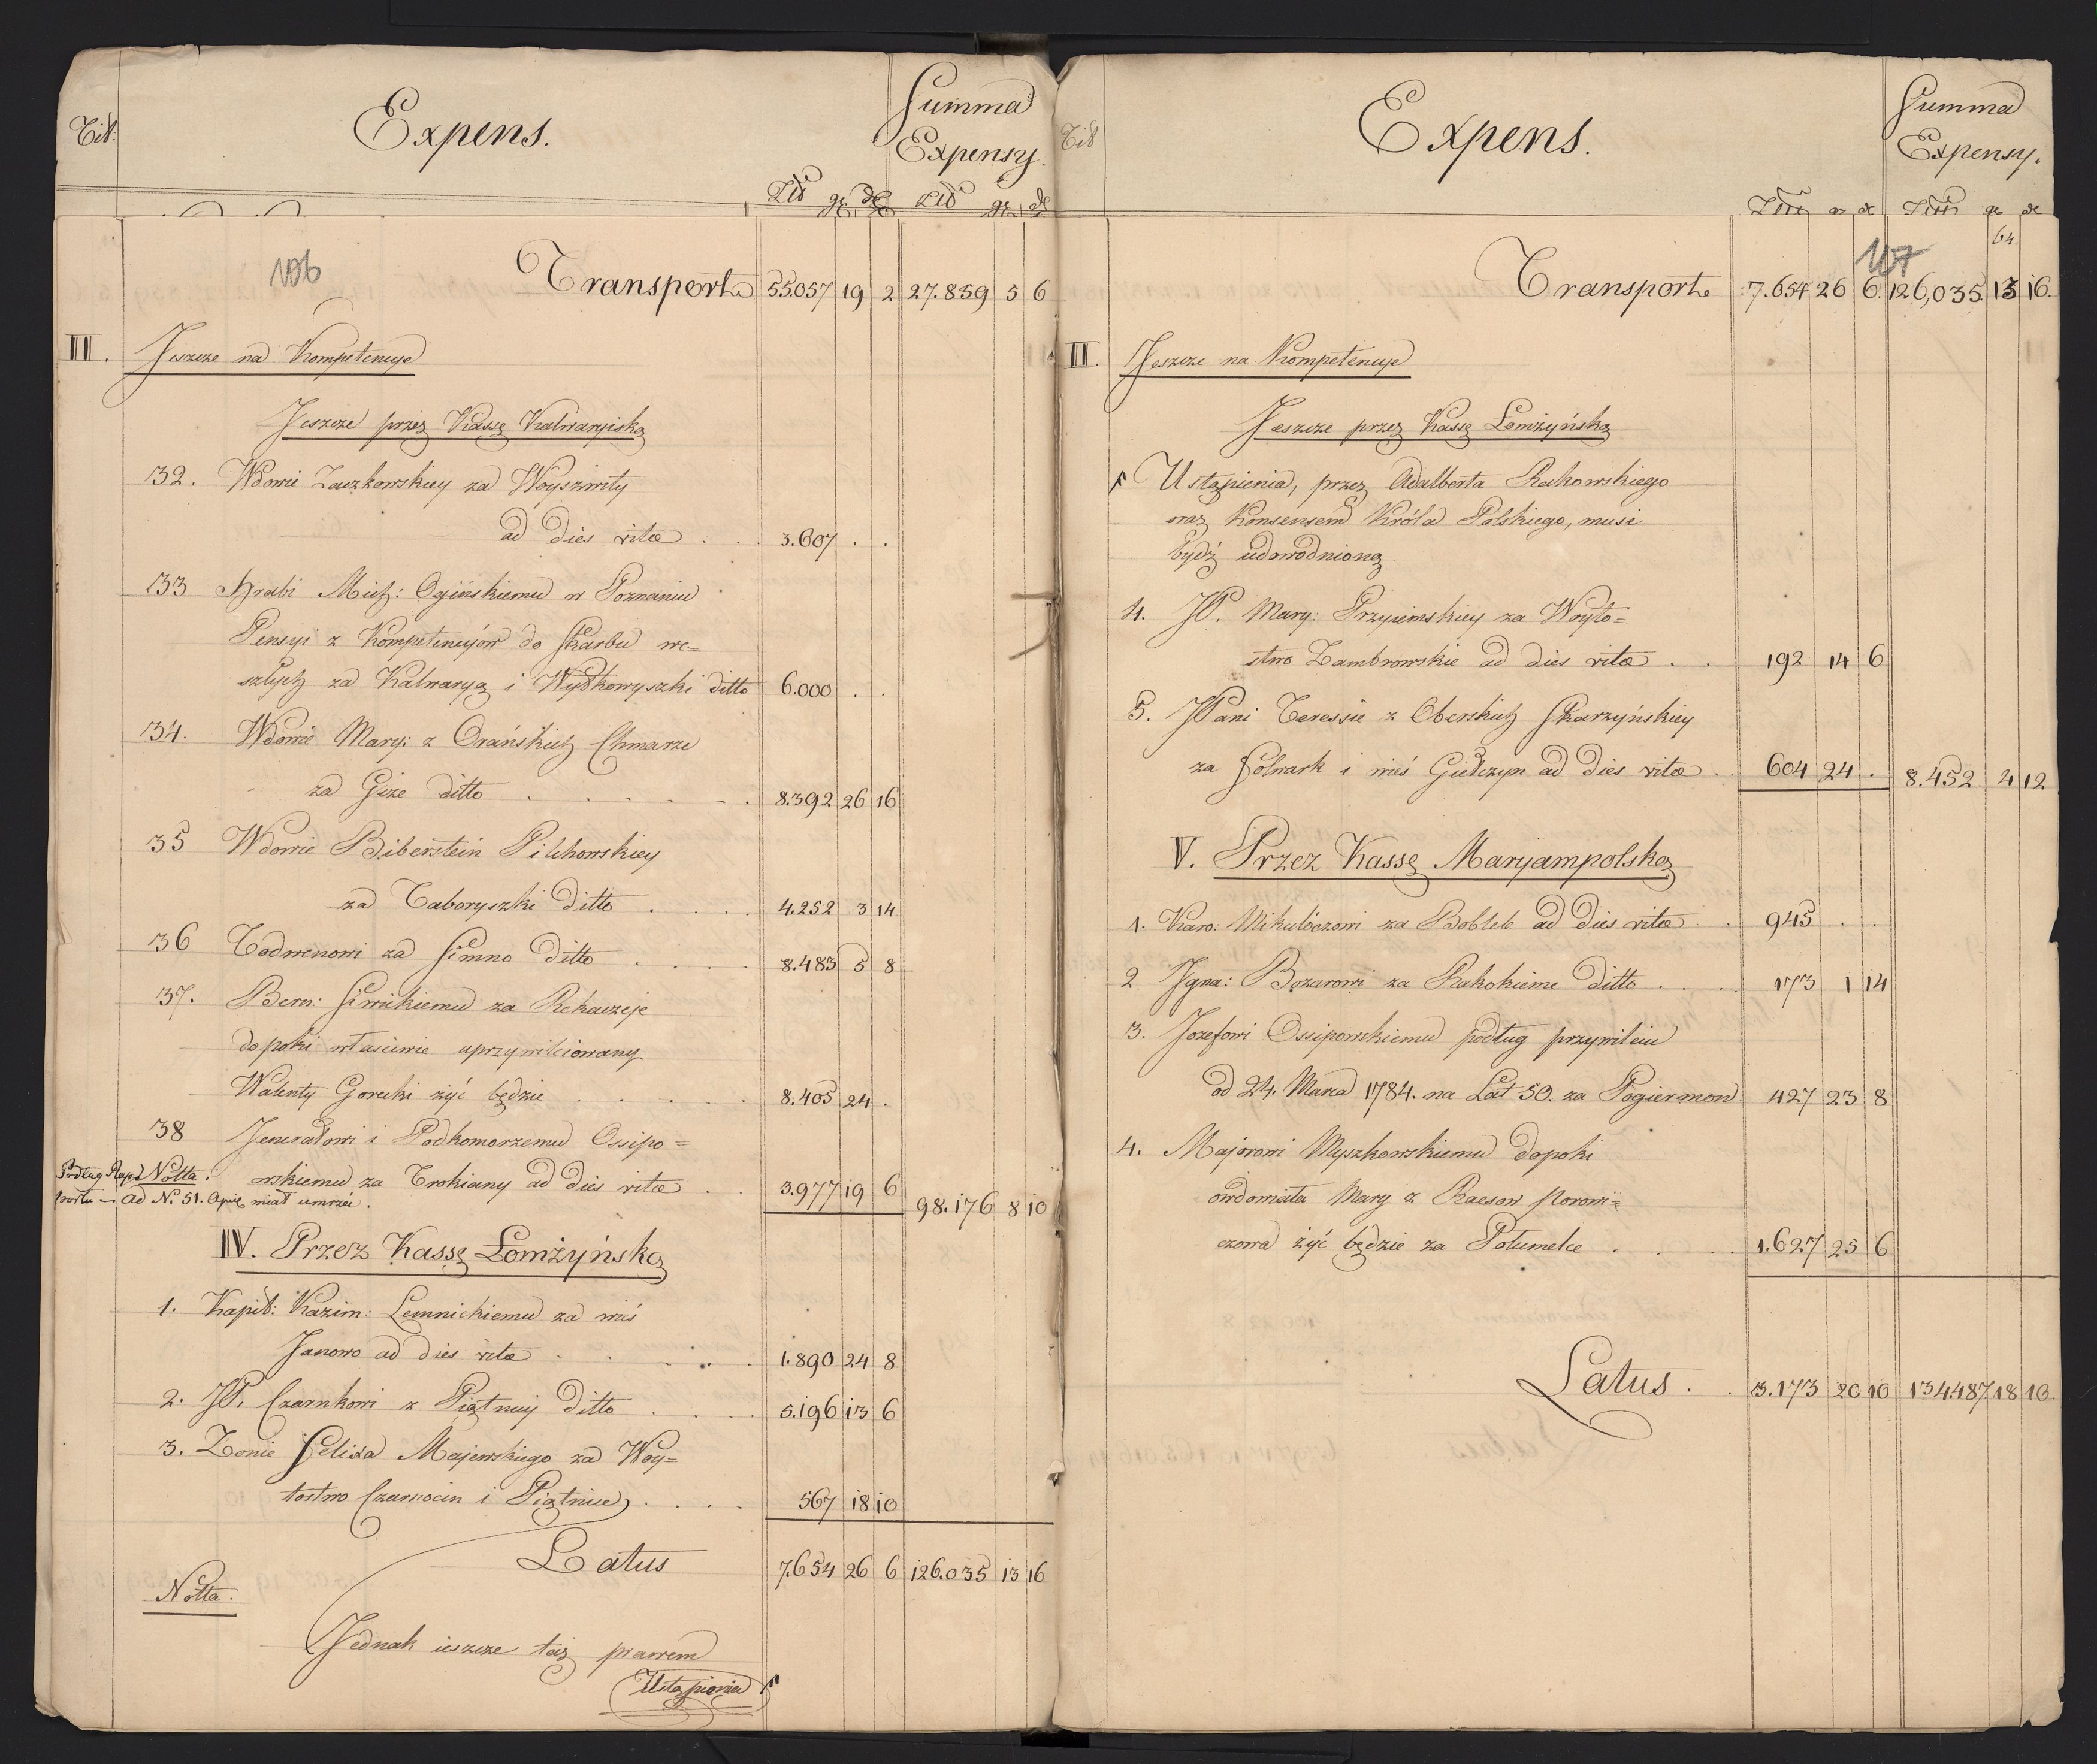 Tit:
Expens.
Summa
Expensy.
Złł gr d Złł gr d
106
Transport 55.057 19 2 27.859 5 6
II. Jeszcze na Kompetencye
Jeszcze przez Kassę Kalwaryiską
32. Wdowie Zaczkowskiey za Woyszwity
ad dies vitæ . . 3.607 . .
33 Hrabi Mich: Ogińskiemu w Poznaniu
Pensyi z Kompetencyów do Skarbu we=
szłych za Kalwaryą i Wyłkowyszki ditto 6.000 . .
34. Wdowie Mary: z Orańskich Chmarze
za Giże ditto . . . . . 8.392 26 16
35 Wdowie Biberstein Pilchowskiey
za Taboryszki ditto . . . 4.252 3 14
36 Todwenowi za Simno ditto . . . 8.483 5 8
37. Bern: Siwickiemu za Rekaczeje
dopoki własciwie uprzywileiowany
Walenty Gorecki żyć będzie . . . . 8.405 24 .
38 Jenerałowi i Podkomorzemu Ossipo=
wskiemu za Trokiany ad dies vitæ . . 3.977 19 6 98.176 8 10
Podług Rap Notta.
portu — ad No. 51. miał umrzeć.
IV. Przez Kassę Łomżyńską
1. Kapit: Kazim: Lemnickiemu za wieś
Janowo ad dies vitæ . . . . 1.890 24 8
2. JP. Czarnkowi z Piątnicy ditto . . . 5.196 13 6
3. Zonie Felixa Majewskiego za Woy=
tostwo Czarnocin i Piątnicę . . . . 567 18 10
Latus 7.654 26 6 126.035 13 16
Notta.
Jednak ieszcze też prawem
Ustąpienia
Tit
Expens.
Summa
Expensy.
Złł gr d Złł gr d
64.
107
Transport. 7.654 26 6. 126,035. 13 16.
II. Jeszcze na Kompetencye
Jeszcze przez Kassę Łomżyńską
Ustąpienia, przez Adalberta Rakowskiego
oraz Konsensem Króla Polskiego, musi
bydź udowodnioną
4. JP. Mary: Przyiemskiey za Woyto=
stwo Zambrowskie ad dies vitæ . . 192 14 6
5. JPani Teressie z Oberskich Skarzyńskiey
za Folwark i wieś Giełczyn ad dies vitæ . . 604 24 . 8.452 4 12
V. Przez Kassę Maryampolską
1. Karo: Mikulóczowi za Boblele ad dies vitæ . . 945 . .
2 Igna: Bozarowi za Rakokieme ditto . . . 173 1 14
3. Jozefowi Ossipowskiemu podług przywileiu
od 24. Marca 1784. na Lat 50. za Pogiermon 427 23 8
4. Majorowi Myszkowskiemu dopoki
owdowiała Mary z Raesow Norowi=
czowa żyć będzie za Potumelce . . . 1.627 25 6
Latus . . 3.173 20 10 134.487 18 10.